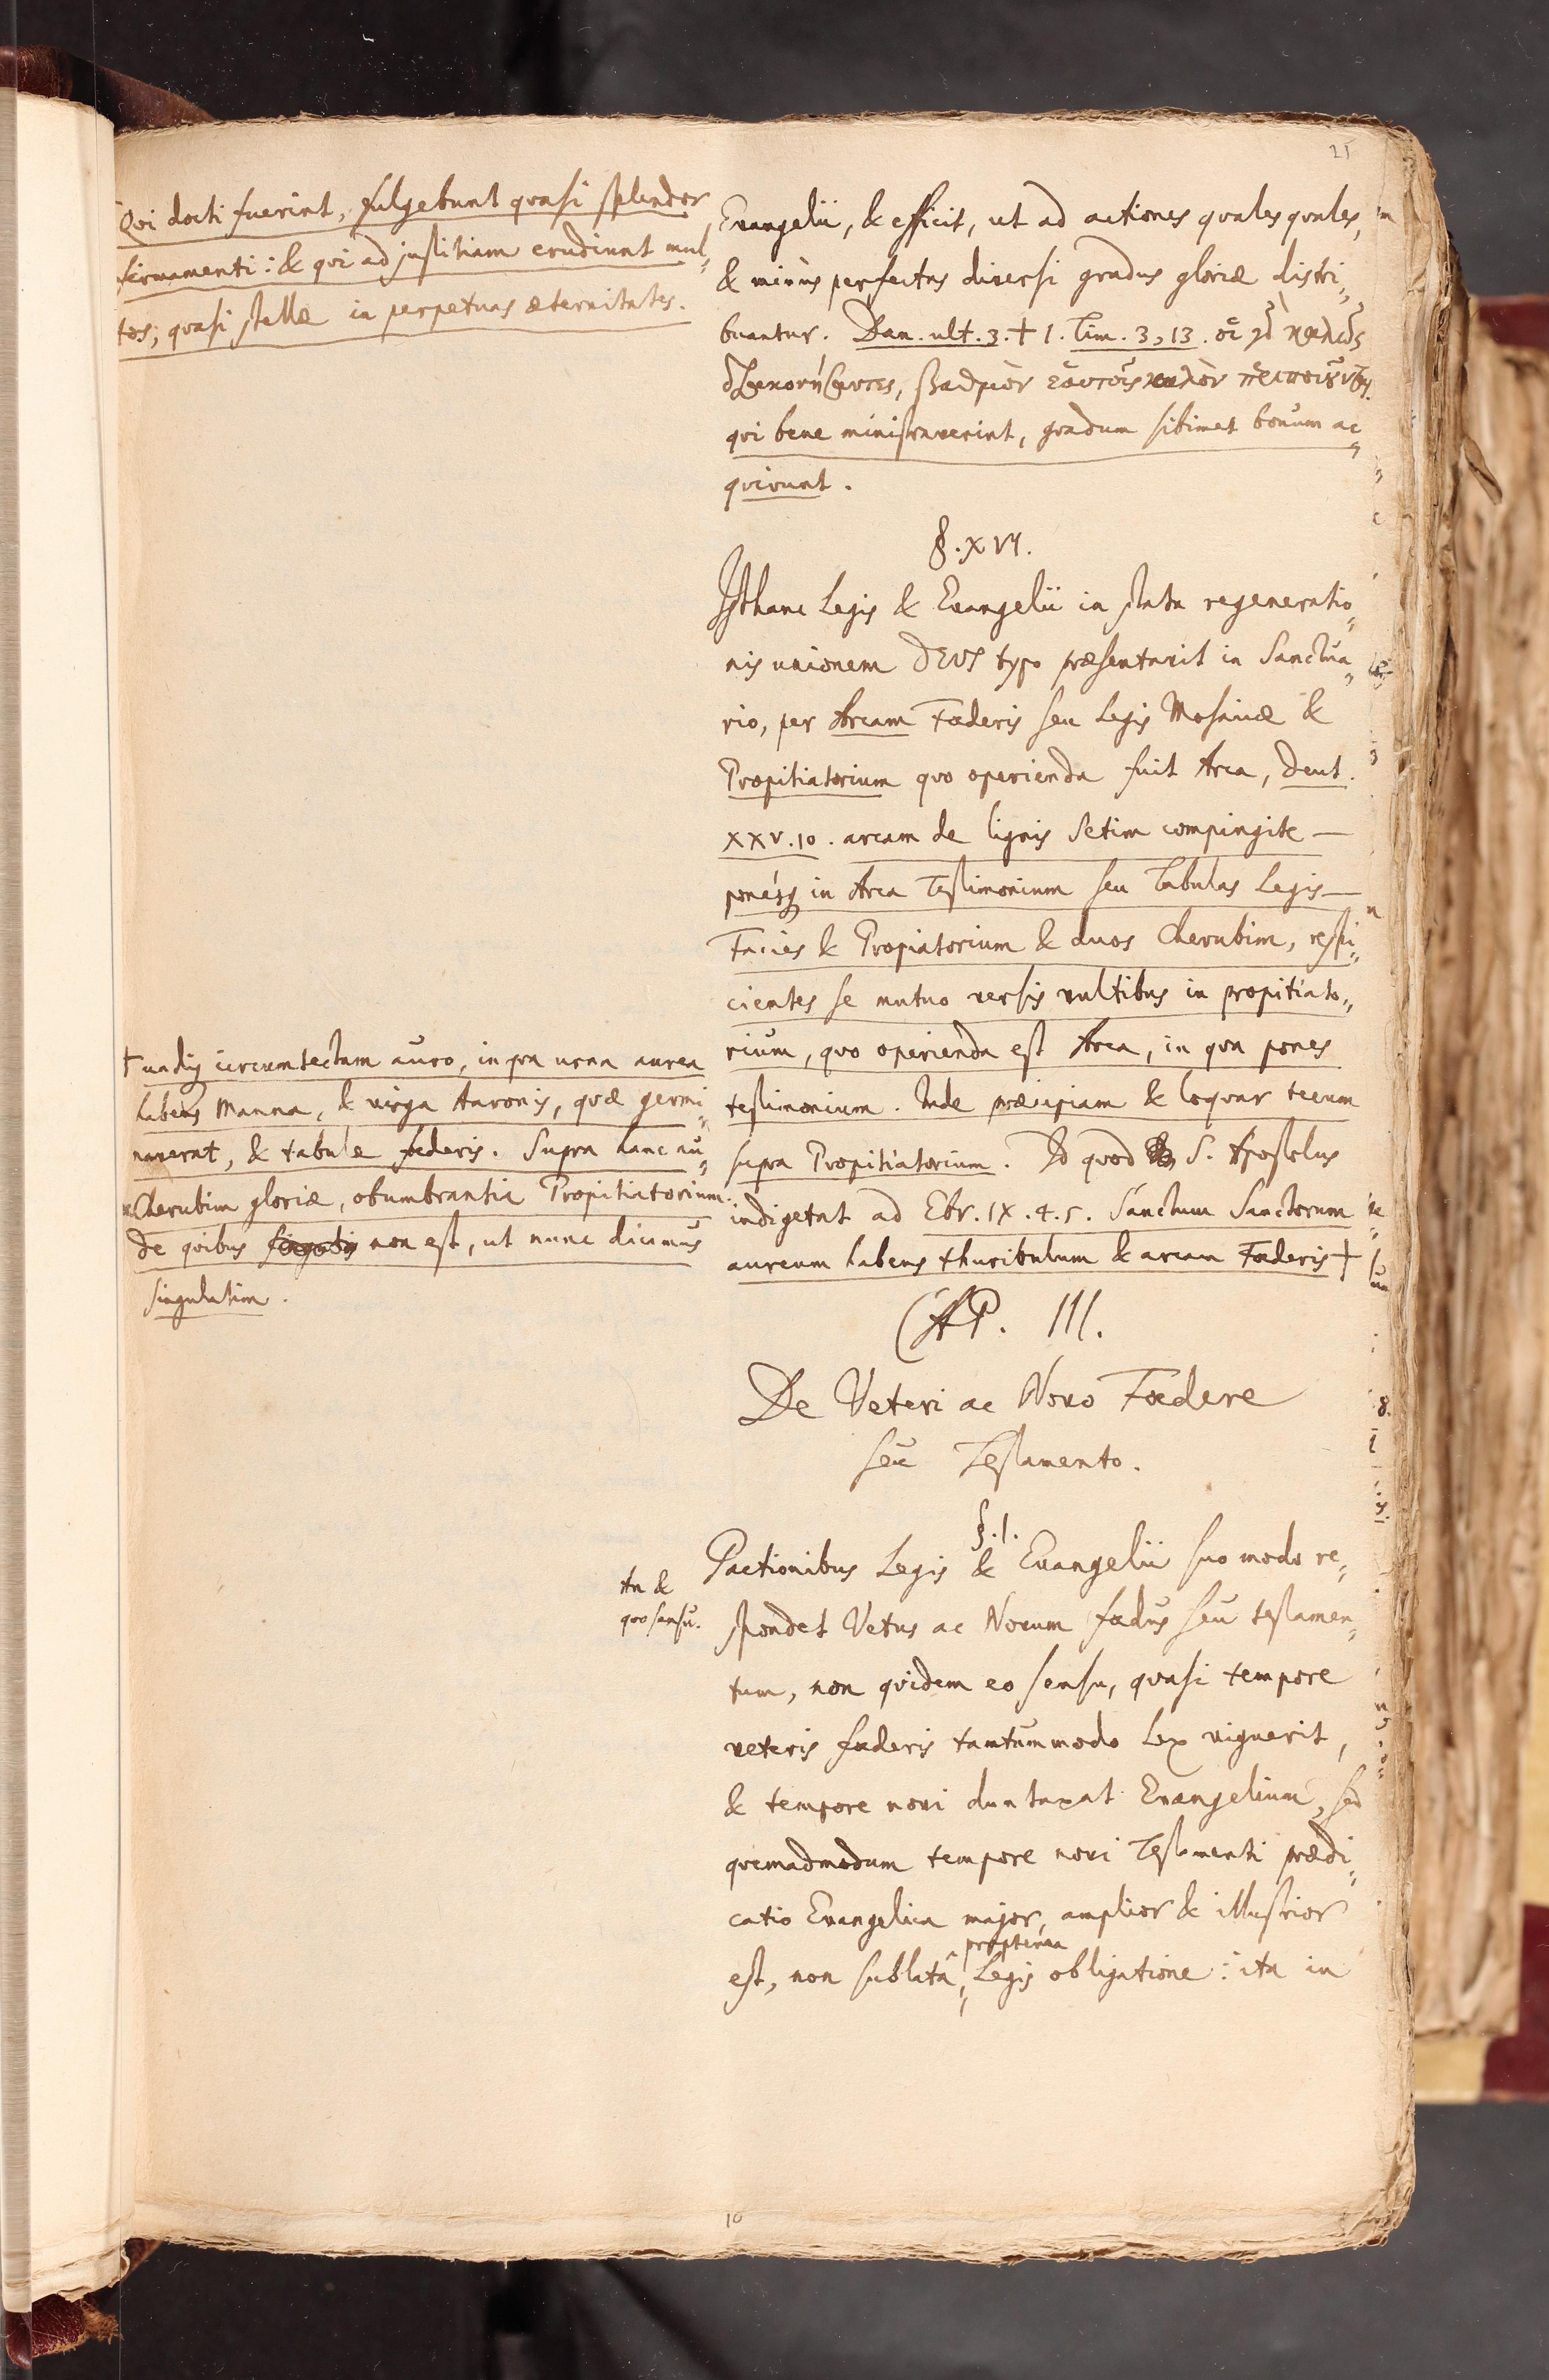 25
Qui docti fuerint, fulgebunt quasi splendor
firmamenti: & qui ad justitiam erudiunt mul„
tos; quasi stellæ in perpetuas æternitates.
Evangelii, & efficit, ut ad actiones quales quales,
& minùs perfectas diversi gradus gloriæ distri„
buantur. Dan. ult. 3. † 1. Tim. 3, 13. οἱ γὸ καλῶς
διακονήσαντες, βαθμὸν ἑαυτοῖς καλὸν περιποιοῦνται.
qui bene ministraverint, gradum sibimet bonum ac„
quirunt.
§. XVI.
Isthanc Legis & Evangelii in statu regeneratio„
nis unionem DEUS typo præsentavit in Sanctua„
rio, per Arcam Fœderis seu Legis Mosaicæ &
Propitiatorium quo operienda fuit Arca, Deut.
XXV. 10. arcam de lignis Setim compingite —
ponésq in Arca Testimonium seu Tabulas Legis —
Facies & Propiatorium & duos Cherubim, respi„
cientes se mutuo versis vultibus in propitiato„
rium, quo operienda est Arca, in qua pones
testimonium. Inde præcipiam & loquar tecum
supra Propitiatorium. Id quod S. Apostolus
indigetat ad Ebr. IX. 4. 5. Sanctum Sanctorum
aureum habens thuribulum & arcam Fœderis †
† undiq circumtectam auro, in qua urna aurea
habens Manna, & virga Aaronis, quæ germi„
naverat, & tabulæ fœderis. Supra hanc au„
Cherubim gloriæ, obumbrantia Propitiatorium.
de quibus singulis non est, ut nunc dicamus
singulatim.
CAP. III.
De Veteri ac Novo Fœdere
seu Testamento.
§. 1.
An &
quo sensu.
Pactionibus Legis & Evangelii suo modo re„
spondet Vetus ac Novum fœdus seu testamen„
tum, non quidem eo sensu, quasi tempore
veteris fœderis tantummodo Lex viguerit,
& tempore novi duntaxat Evangelium, sed
quemadmodum tempore novi Testamenti prædi„
catio Evangelica major, amplior & illustrior
propterea
est, non sublatâ, Legis obligatione: ita in
10